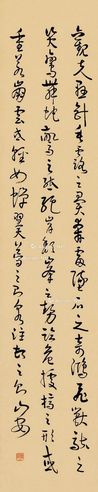 觀夫懸針垂露之異奔雷墜石之奇鴻飛獸駭之
資鸞舞蛇驚之態絕岸頹峰之勢臨危據槁之形或
重若崩雲或輕如蟬翼導之則泉注頓之則山安